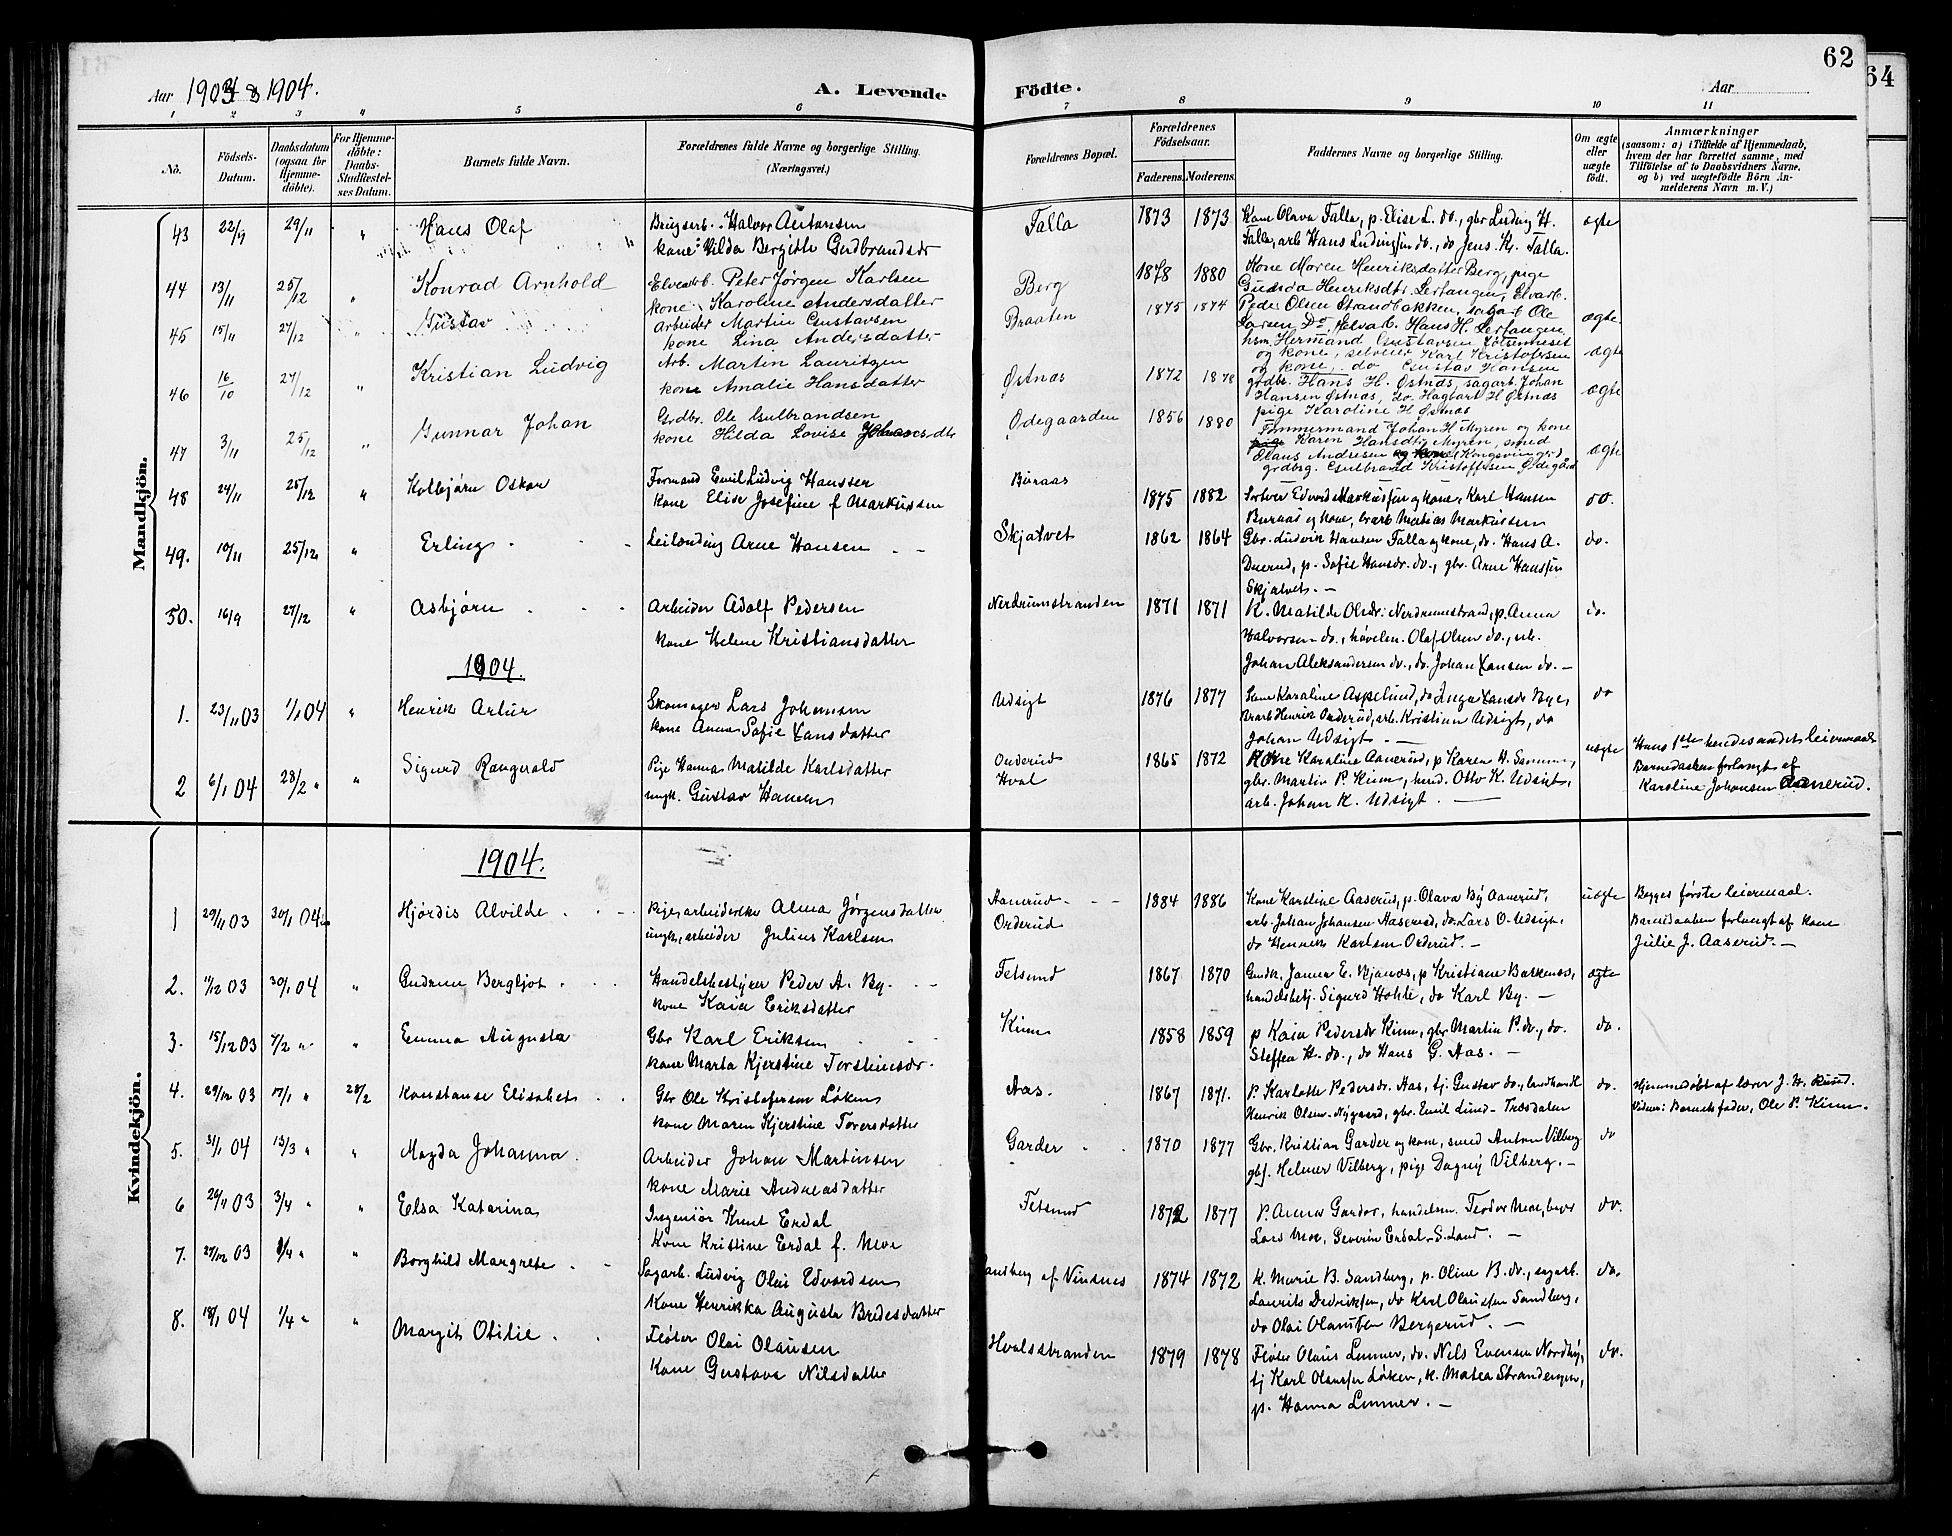 62
64
Aar 1903 & 1904.
A. Levende Födte.
Aar
1 2 3 4 5 6 7 8 9 10 11
No.
Födsels-Datum.
Daabsdatum (ogsaa for Hjemme-döbte).
For Hjemme-döbte: Daabs-Stadfæstel-ses Datum.
Barnets fulde Navn.
Forældrenes fulde Navne og borgerlige Stilling. (Næringsvei.)
Forældrenes Bopæl.
Forældrenes Födselsaar.
Faderens. Moderens.
Faddernes Navne og borgerlige Stilling.
Om ægte eller uægte födt.
Anmærkninger
(saasom: a) i Tilfælde af Hjemmedaab, hvem der har forrettet samme, med Tilföielse af to Daabsvidners Navne, og b) ved uægtefödte Börn An-melderens Navn m. V.)
Mandkjön.
43 29/11 " Hans Olaf
Brugserb. Halvor Antonsen
kone: Hilda Bergitte Gudbrandsdr
Falla 1873 1873
Kone Olava Falla, p. Elise L. do., gbr Ludvig H.
Falla, arb Hans Ludvigsen do., do Jens Kr. Falla.
ægte
44 13/11 25/12 " Konrad Arnhold
Elvearb. Peter Jørgen Karlsen
kone Karoline Andersdatter
Berg 1878 1880
Kone Maren Henriksdatter Berg, pige
Gunda Henriksdtr. Lerfangen, Elvarb.
45 15/11 27/12 Gustav
Arbeider Martin Gustavsen
kone Lina Andersdatter
Braaten 1875 1874
Peder Olsen Strandbakken, sagarb Ole
Larsen Do, Elvarb. Hans H. Lerfangen
ægte
hsm. Hermand Gustavsen
og kone, selveier Karl Kristofersen
og kone, do Gustav Hansen
ægte
46 16/10 27/12 " Kristian Ludvig
Arb. Martin Lauritzen
kone Amalie Hansdatter
Østnæs 1872 1878
grdbr. Hans H. Østnæs, sagarb. Johan
Hansen Østnæs, do. Hagbart H Østnæs
pige Karoline H Østnæs
ægte
47 3/11 25/12 " Gunnar Johan
Grdbr. Ole Gulbrandsen
kone Hilda Lovise
Ødegaarden 1856 1880
Tømmermand Johan H Myren og kone
Karen Hansdtr Myren, smed
Olaus Andresen og kone (Kongsvinger)
grdbrg. Gulbrand Kristoffersen Ødegård
ægte
48 24/11 25/12 " Kolbjørn Oskar
Formand Emil Ludvig Hansen
Kone Elise Josefine f Markussen
Buraas 1875 1882
Selveier Edvard Markussen og kone, Karl Hansen
Buraas og kone, arb Matias Markussen
do.
49. 10/11 25/12 " Erling
Leilænding Arne Hansen
Skjatvet 1862 1864
Gbr. Ludvik Hansen Falla og kone, do. Hans A.
Duerud, p. Sofie Hansdr. do., gbr. Arne Hanssen
Skjatvet. —
do.
50. 16/9 27/12 " Asbjørn
Arbeider Adolf Pedersen
kone Helene Kristiansdatter
Nerdrumstranden 1871 1871
K. Matilde Olsdr: Nerdrumstrand, p. Anna
Halvorsen do., høvelm. Olaf Olsen do., arb.
Johan Aleksandersen do., do. Johan Hansen do. —
do.
1904.
1. 23/11 03 1/1 04 " Henrik Artur
Skomager Lars Johansen
kone Anna Sofie Hansdatter
Udsigt 1876 1877
Kone Karoline Aspelund, do Inga Hansdr Bye,
arb Henrik Orderud, arb. Kristian Udsigt, do
Johan Udsigt. —
do
2 6/1 04 28/2 " " Sigurd Rangvald
Pige Hanna Matilde Karlsdatter
ungk. Gustav Hansen
Orderud
Hval
1865 1872
Kone Karoline Aanerud, p Karen H. Sannum,
gbr. Martin P. Kinn, hmd. Otto K. Udsigt,
arb. Johan K. Udsigt. —
uægte
Hans 1ste hendes andet leiermaal
Barnedaaben forlangt af
Karoline Johansen Aanerud.
Kvindekjön.
1904.
1 29/11 03 30/1 04 Hjørdis Alvilde
Pige, arbeiderske Alma Jørgensdatter
ungk., arbeider Julius Karlsen
Aanerud
Orderud
1884 1886
Kone Karoline Aaserud, p. Olava By Aanerud,
arb. Johan Johansen Aaserud, do. Lars O. Udsigt,
do Hennik Karlsen Orderud. —
uægte
Begges første leiermaal.
Barnedaaben forlangt af kone
Julie J. Aaserud. —
2. 1/12 03 30/1 04 " Gudrun Bergljot
Handelsbestyrer Peder A. By.
kone Kaia Eriksdatter
Fetsund 1867 1870
Gmdk. Janna E. Bjanæs, p Kristiane Bakkenes,
handelsbetj. Sigurd Hohle, do Karl By. —
ægte
3. 15/12 03 7/2 " " Emma Augusta
Gbr Karl Eriksen
kone Marta Kjerstine Torstensdr.
Kinn 1858 1859
p Kaia Pedersdr Kinn, gbr Martin P. do., do.
Steffen H. do., do Hans G. Aas. —
do.
4. 29/12 03 17/1 " 28/2 Konstanse Elisabet
Gbr Ole Kristofersen Løken
kone Maren Kjerstine Toversdatter
Aas. 1867 1871.
P. Karlotte Pedersdr. Aas, tj Gustav do., landhandl
Henrik Olsen Nygaard, gbr. Emil Lund - Træsdalen
do.
Hjemmedøbt af lærer J. H. Ruud.
Vidner: Barnets fader, Ole P. Kinn.
5. 31/1 04 13/3 " " Magda Johanna
Arbeider Johan Martinsen
kone Marie Andreasdatter
Garder 1870 1877
Gbr. Kristian Garder og kone, smed Anton Vilberg
gbs. Helmer Vilberg, pige Dagny Vilberg. —
do
6 26/11 03 3/4 " " Elsa Katarina
Ingeniør Knut Erdal
Kone Kristine Erdal f. Moe
Fetsund 1872 1877
P. Anna Garder, handelsm. Teodor Moe,
Lars Moe, Severin Erdal, S. Land. —
do.
7. 27/12 03 1/4 " " Borghild Margrete
Sagarb. Ludvig Olai Edvardsen
Kone Henrikka Augusta Bredesdatter
Sandberg af Vinsnes 1874 1872
k. Marie B. Sandberg, p. Oline B. do., sagarb.
Laurits Dedriksen, do Karl Olaussen Sandberg,
do Olai Olaussen Bergerud. —
do.
8. 18/1 04 1/4 " " Margit Otilie
Fløter Olai Olausen
Kone Gustava Nilsdatter
Hvalsstranden 1879 1878
Fløter Olaus Lunner, do. Nils Evensen Nordby,
tj Karl Olaussen Løken, k. Matea Strandengen,
p. Hanna Lunner. —
do.